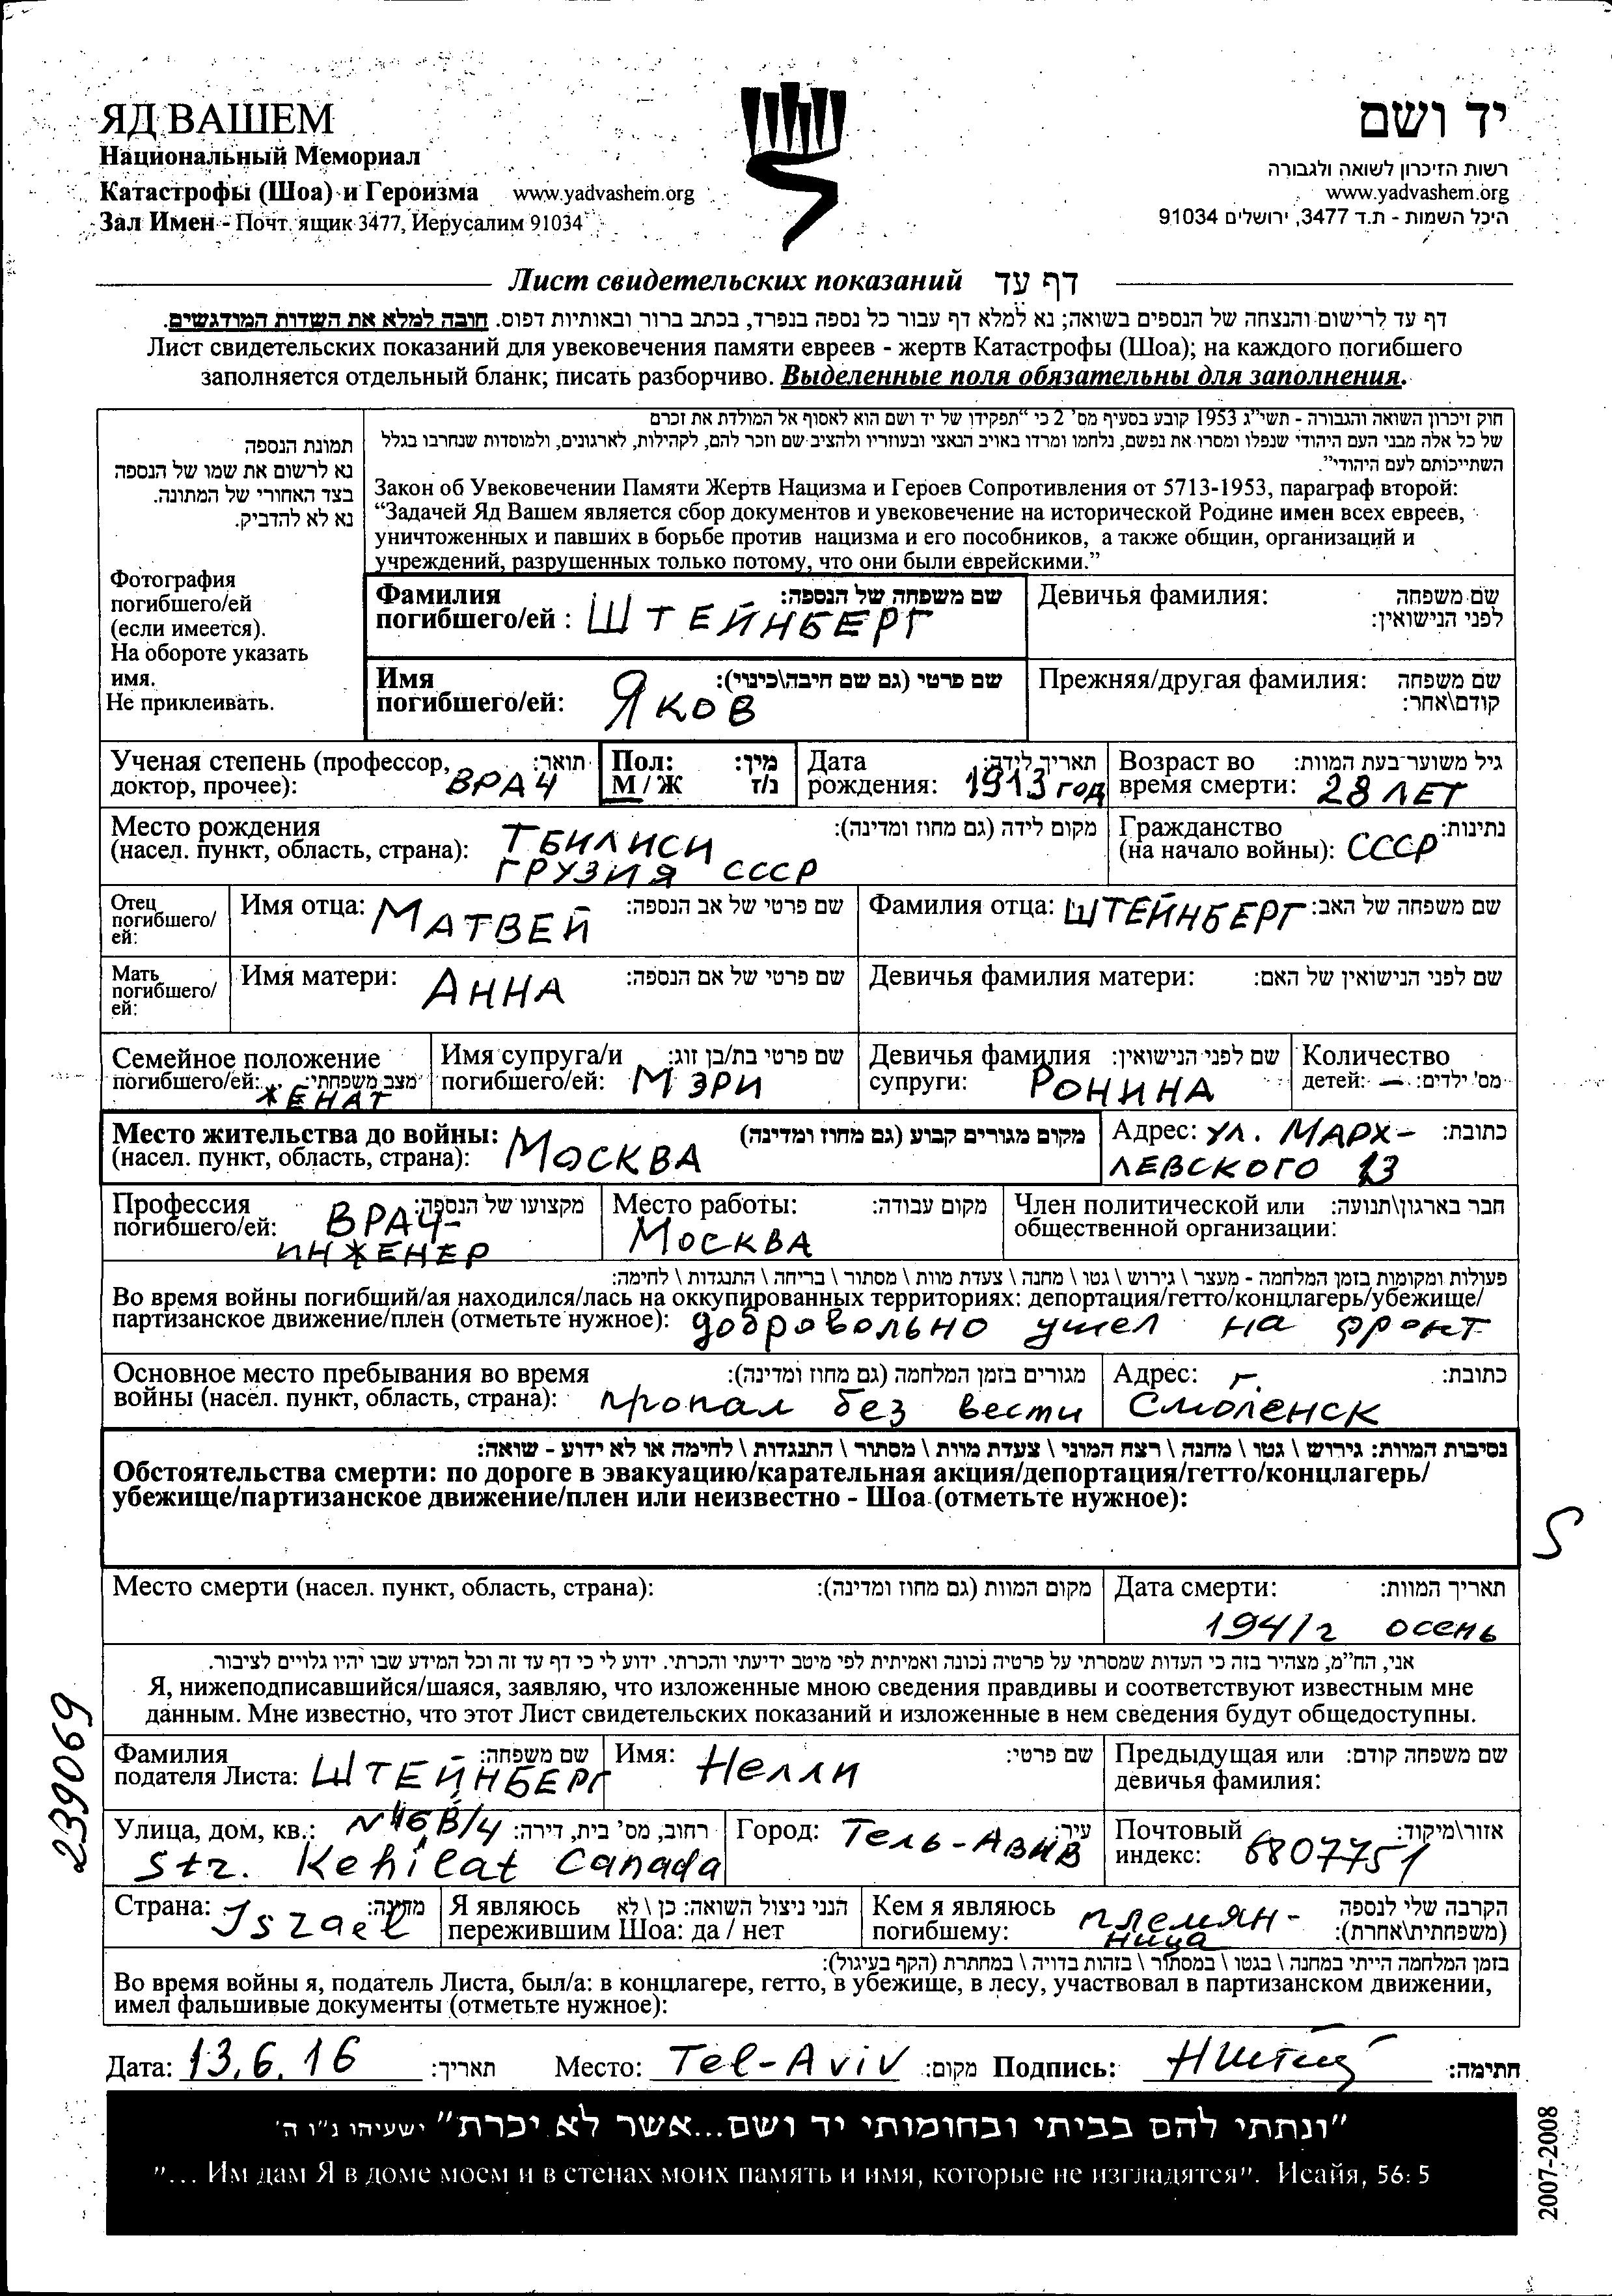 ЯД ВАШЕМ
Национальный Мемориал
Катастрофы (Шоа) и Героизма www.yadvashem.org
Зал Имен - Почт. ящик 3477, Иерусалим 91034
יד ושם
רשות הזיכרון לשואה ולגבורה
www.yadvashem.org
היכל השמות - ת.ד 3477, ירושלים 91034
Лист свидетельских показаний דף עד
דף עד לרישום והנצחה של הנספים בשואה; נא למלא דף עבור כל נספה בנפרד, בכתב ברור ובאותיות דפוס. חובה למלא את השדות המודגשים.
Лист свидетельских показаний для увековечения памяти евреев - жертв Катастрофы (Шоа); на каждого погибшего
заполняется отдельный бланк; писать разборчиво. Выделенные поля обязательны для заполнения.
תמונת הנספה
נא לרשום את שמו של הנספה
בצד האחורי של המתונה.
נא לא להדביק.
Фотография
погибшего/ей
(если имеется).
На обороте указать
имя.
Не приклеивать.
חוק זיכרון השואה והגבורה - תשי"ג 1953 קובע בסעיף מס' 2 כי "תפקידו של יד ושם הוא לאסוף אל המולדת את זכרם
של כל אלה מבני העם היהודי שנפלו ומסרו את נפשם, נלחמו ומרדו באויב הנאצי ובעוזריו ולהציב שם וזכר להם, לקהילות, לארגונים, ולמוסדות שנחרבו בגלל
השתייכותם לעם היהודי".
Закон об Увековечении Памяти Жертв Нацизма и Героев Сопротивления от 5713-1953, параграф второй:
"Задачей Яд Вашем является сбор документов и увековечение на исторической Родине имен всех евреев,
уничтоженных и павших в борьбе против нацизма и его пособников, а также общин, организаций и
учреждений, разрушенных только потому, что они были еврейскими."
Фамилия שם משפחה של הנספה:
погибшего/ей : ШТЕЙНБЕРГ
Девичья фамилия: שם משפחה
לפני הנישואין:
Имя שם פרטי (גם שם חיבה\כינוי):
погибшего/ей: ЯКОВ
Прежняя/другая фамилия: שם משפחה
קודם\אחר:
Ученая степень (профессор, תואר:
доктор, прочее): ВРАЧ
Пол: מין:
М / Ж ז/נ
Дата תאריך לידה:
рождения: 1913 год
Возраст во גיל משוער בעת המוות:
время смерти: 28 ЛЕТ
Место рождения מקום לידה (גם מחוז ומדינה):
(насел. пункт, область, страна): ТБИЛИСИ
ГРУЗИЯ СССР
Гражданство נתינות:
(на начало войны): СССР
Отец
погибшего/
ей:
Имя отца: МАТВЕЙ שם פרטי של אב הנספה:
Фамилия отца: ШТЕЙНБЕРГ שם משפחה של האב:
Мать
погибшего/
ей:
Имя матери: АННА שם פרטי של אם הנספה:
Девичья фамилия матери: שם לפני הנישואין של האם:
Семейное положение
погибшего/ей: מצב משפחתי:
ЖЕНАТ
Имя супруга/и שם פרטי בת/בן זוג:
погибшего/ей: МЭРИ
Девичья фамилия שם לפני הנישואין:
супруги: РОНИНА
Количество
детей: — מס' ילדים:
Место жительства до войны: מקום מגורים קבוע (גם מחוז ומדינה)
(насел. пункт, область, страна): МОСКВА
Адрес: УЛ. МАРХ- כתובת:
ЛЕВСКОГО 13
Профессия מקצועו של הנספה:
погибшего/ей: ВРАЧ-
ИНЖЕНЕР
Место работы: מקום עבודה:
МОСКВА
Член политической или חבר בארגון\תנועה:
общественной организации:
פעולות ומקומות בזמן המלחמה - מעצר \ גירוש \ גטו \ מחנה \ צעדת מוות \ מסתור \ בריחה \ התנגדות \ לחימה:
Во время войны погибший/ая находился/лась на оккупированных территориях: депортация/гетто/концлагерь/убежище/
партизанское движение/плен (отметьте нужное): добровольно ушел на фронт
Основное место пребывания во время מגורים בזמן המלחמה (גם מחוז ומדינה):
войны (насел. пункт, область, страна): пропал без вести
Адрес: г. כתובת:
Смоленск
נסיבות המוות: גירוש \ גטו \ מחנה \ רצח המוני \ צעדת מוות \ מסתור \ התנגדות \ לחימה או לא ידוע - שואה:
Обстоятельства смерти: по дороге в эвакуацию/карательная акция/депортация/гетто/концлагерь/
убежище/партизанское движение/плен или неизвестно - Шоа (отметьте нужное):
S
Место смерти (насел. пункт, область, страна): מקום המוות (גם מחוז ומדינה):
Дата смерти: תאריך המוות:
1941г осень
אני, הח"מ, מצהיר בזה כי העדות שמסרתי על פרטיה נכונה ואמיתית לפי מיטב ידיעתי והכרתי. ידוע לי כי דף עד זה וכל המידע שבו יהיו גלויים לציבור.
Я, нижеподписавшийся/шаяся, заявляю, что изложенные мною сведения правдивы и соответствуют известным мне
данным. Мне известно, что этот Лист свидетельских показаний и изложенные в нем сведения будут общедоступны.
239069
Фамилия שם משפחה:
подателя Листа: ШТЕЙНБЕРГ
Имя: Нелли שם פרטי:
Предыдущая или שם משפחה קודם:
девичья фамилия:
Улица, дом, кв.: N 46,B/4 רחוב, מס' בית, דירה:
str. Kehilat Canada
Город: Тель-Авив עיר:
Почтовый אזור\מיקוד:
индекс: 6807751
Страна: Iszael מדינה:
Я являюсь הנני ניצול השואה: כן \ לא
пережившим Шоа: да / нет
Кем я являюсь הקרבה שלי לנספה
погибшему: племян- (משפחתית\אחרת):
ница
בזמן המלחמה הייתי במחנה \ בגטו \ במסתור \ בזהות בדויה \ במחתרת (הקף בעיגול):
Во время войны я, податель Листа, был/а: в концлагере, гетто, в убежище, в лесу, участвовал в партизанском движении,
имел фальшивые документы (отметьте нужное):
Дата: 13.6.16 תאריך: Место: Tel-Aviv מקום: Подпись: חתימה:
"ונתתי להם בביתי ובחומותי יד ושם...אשר לא יכרת" ישעיהו נ"ו ה'
"... Им дам Я в доме моем и в стенах моих память и имя, которые не изгладятся". Исайя, 56: 5
2007-2008